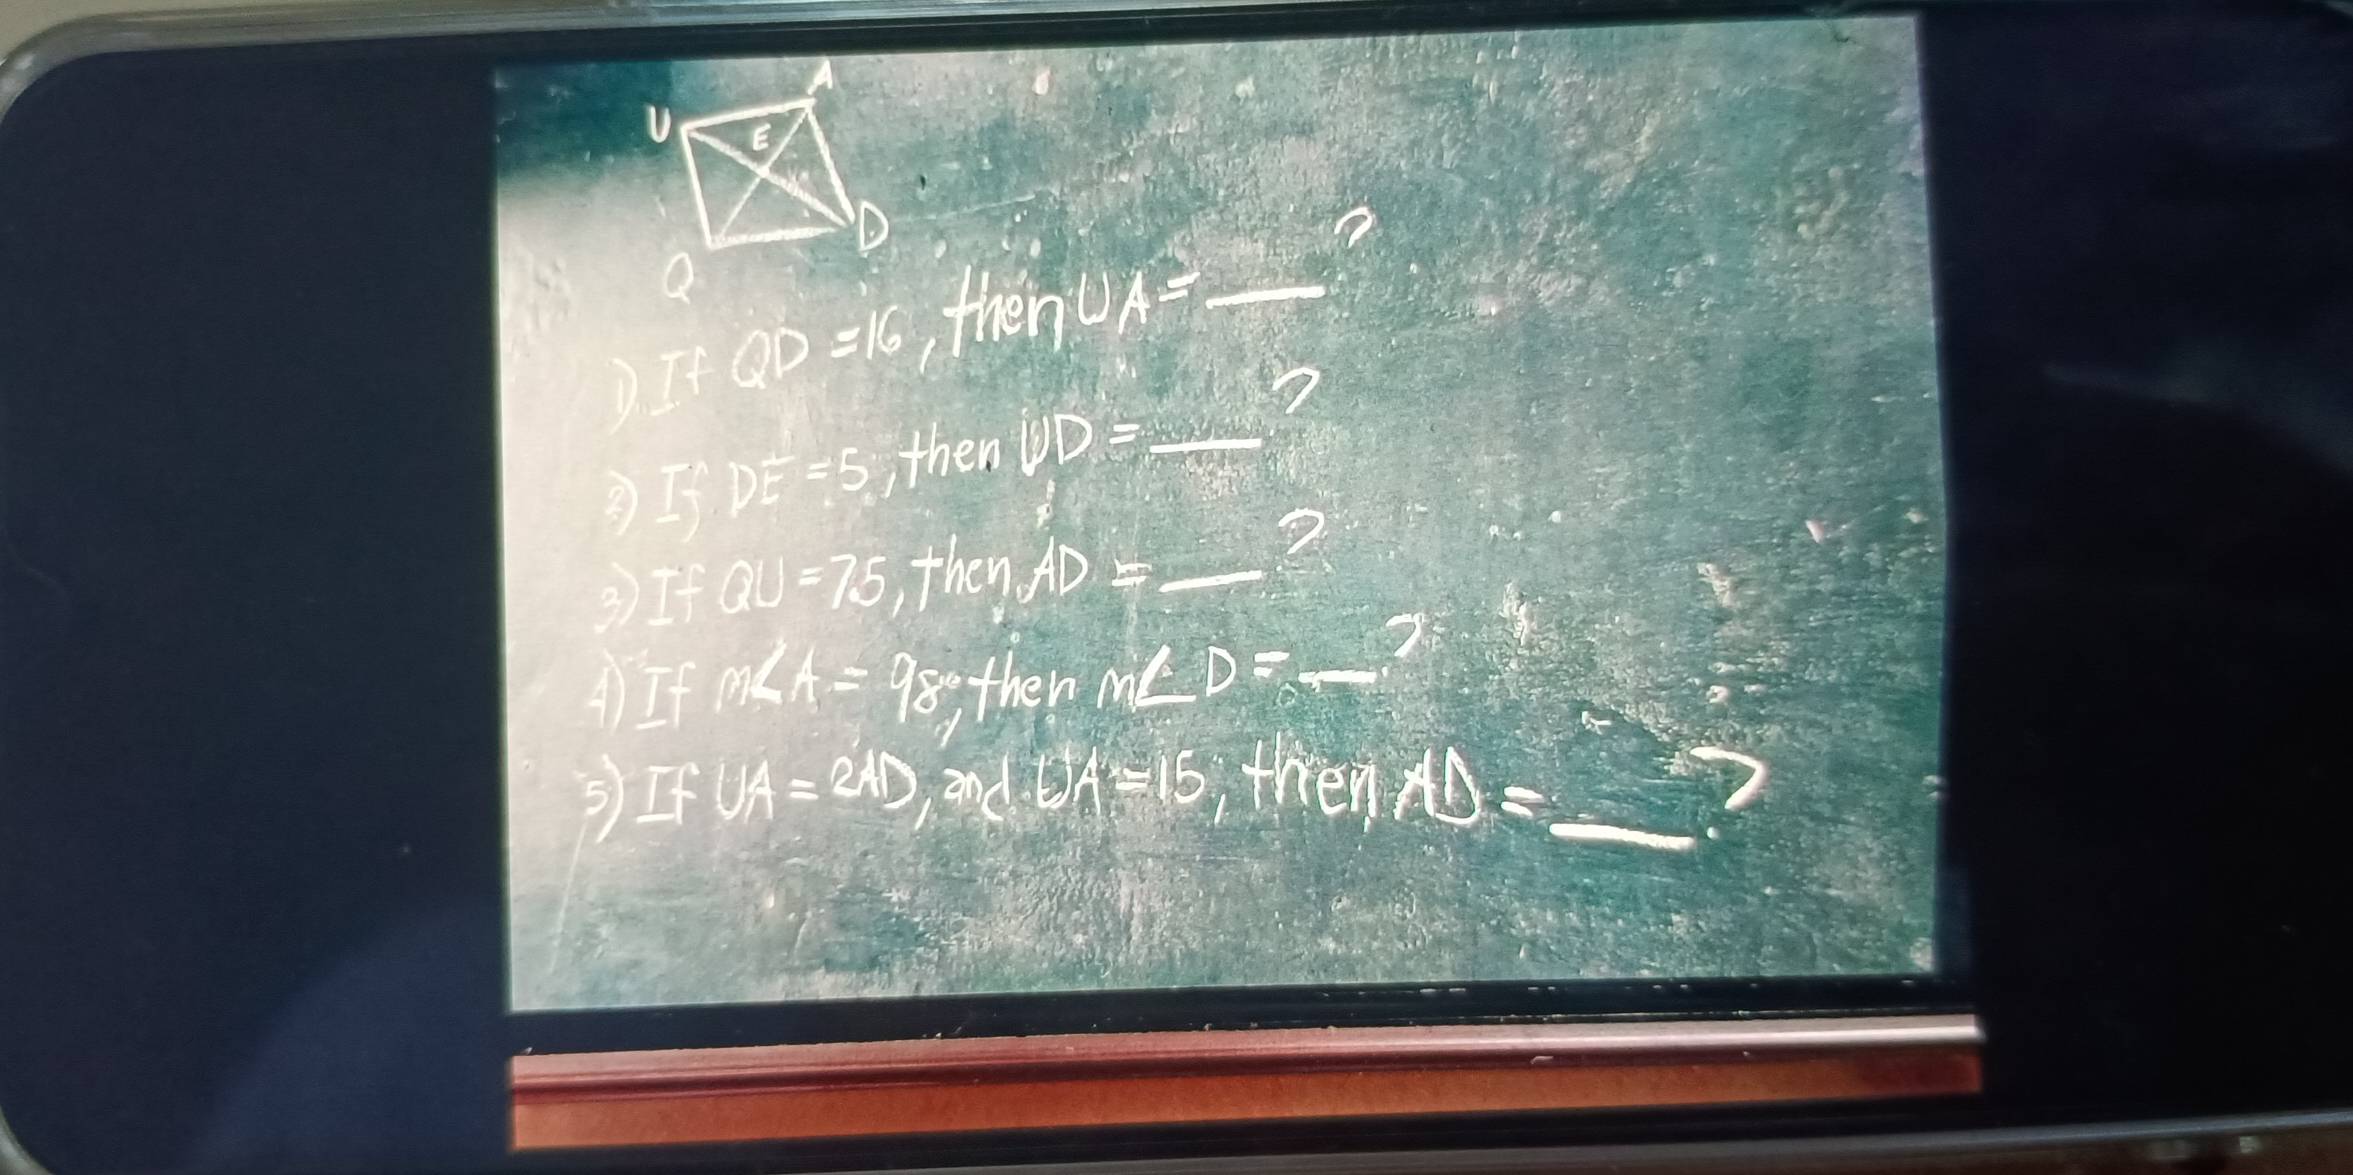 A
U
E
D
Q
1) If QD = 16, then UA = ___?
2) If DE = 5, then UD = ___?
3) If QU = 75, then AD = ___?
4) If m∠A = 98°, then m∠D = ___?
5) If UA = 2AD, and UA = 15, then AD = ___?